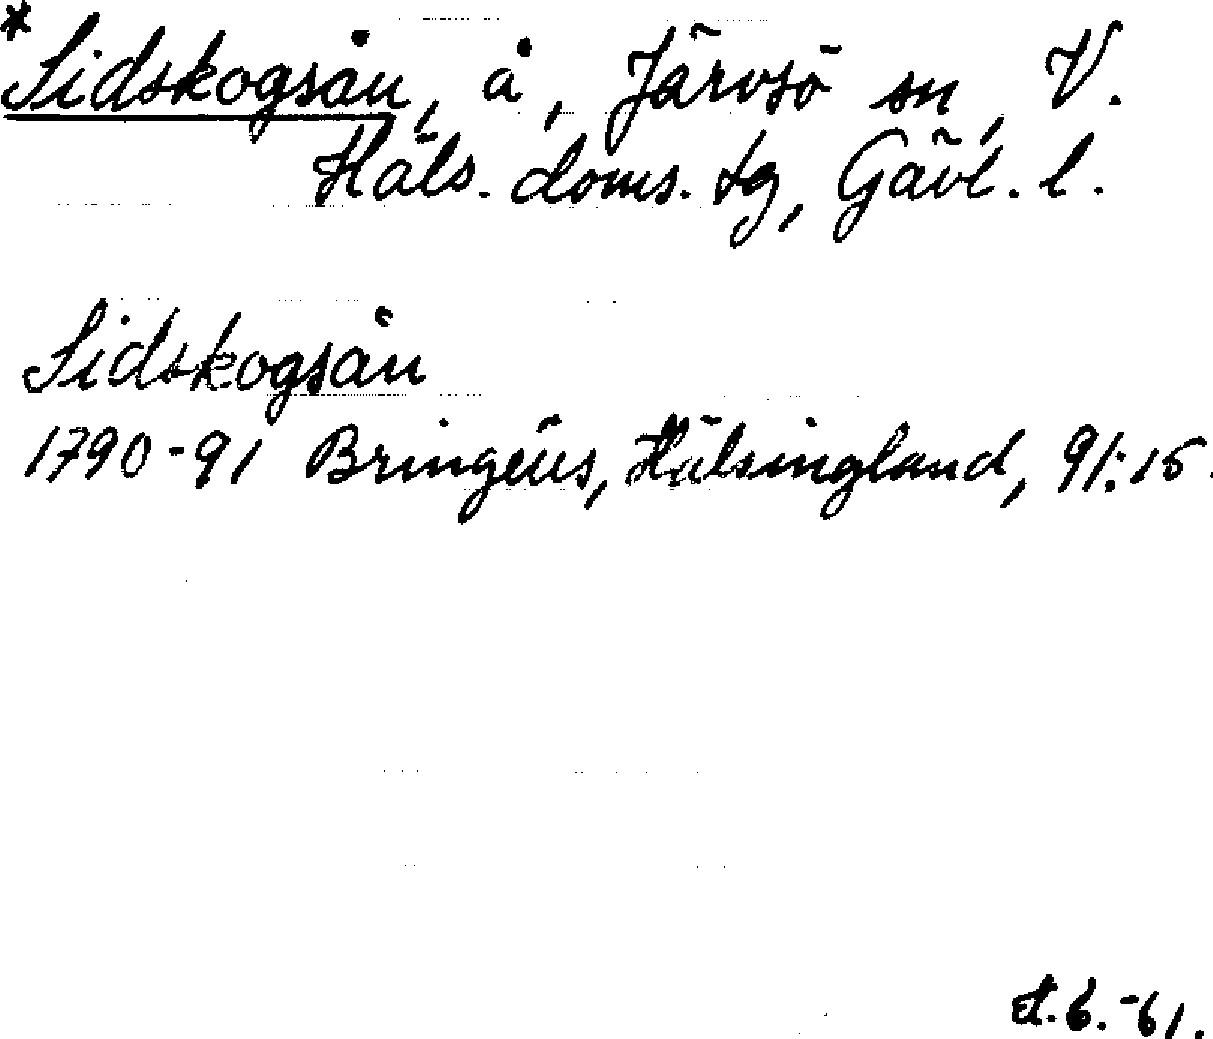 *Sidskogsån, å, Järvsö sn, V.
Häls. doms. tg, Gävl. l.
Sidskogsån
1790-91 Bringéus, Hälsingland, 91:15.
6.-61.